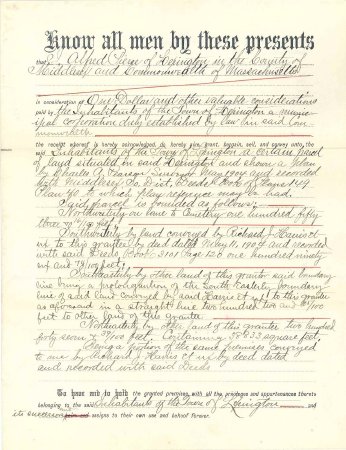 Know all men by these presents
that I, Alfred Pierce of Lexington in the County of
Middlesex and Commonwealth of Massachusetts
in consideration of One Dollar and other valuable considerations
paid by the Inhabitants of the Town of Lexington a munici-
pal corporation duly established by law in said Com-
monwealth
the receipt whereof is hereby acknowledged, do hereby give, grant, bargain, sell, and convey unto the
said Inhabitants of the Town of Lexington a certain parcel
of land situated in said Lexington and shown a plan
by Charles A. Surveyor May 1904 and recorded
with Middlesex So. Dist. Deeds Book of Plans 149
Plan 40 to which Plan reference may be had.
Said parcel is bounded as follows:
Northwesterly on lane to Cemetery one hundred fifty
three 9/100 feet;
Southwesterly by land conveyed by Richard J. Harris et
ux to this grantee by deed dated May 11, 1904 and recorded
with said Deeds Book 3101 Page 126 one hundred ninety
six and 73/100 feet;
Southeasterly by other land of this grantor said boundary
line being a prolongation of the South Easterly boundary
line of said land conveyed by said Harris et ux to this grantee
as aforesaid in a straight line two hundred two and /100
feet to other land of this grantor
Northeasterly by other land of this grantor two hundred
forty seven & 39/100 feet. Containing 38633 square feet,
Being a portion of the same premises conveyed
to me by Richard J. Harris et ux by deed dated
and recorded with said Deeds
To have and to hold the granted premises, with all the privileges and appurtenances thereto
belonging to the said Inhabitants of the Town of Lexington and
its successors and assigns to their own use and behoof forever.